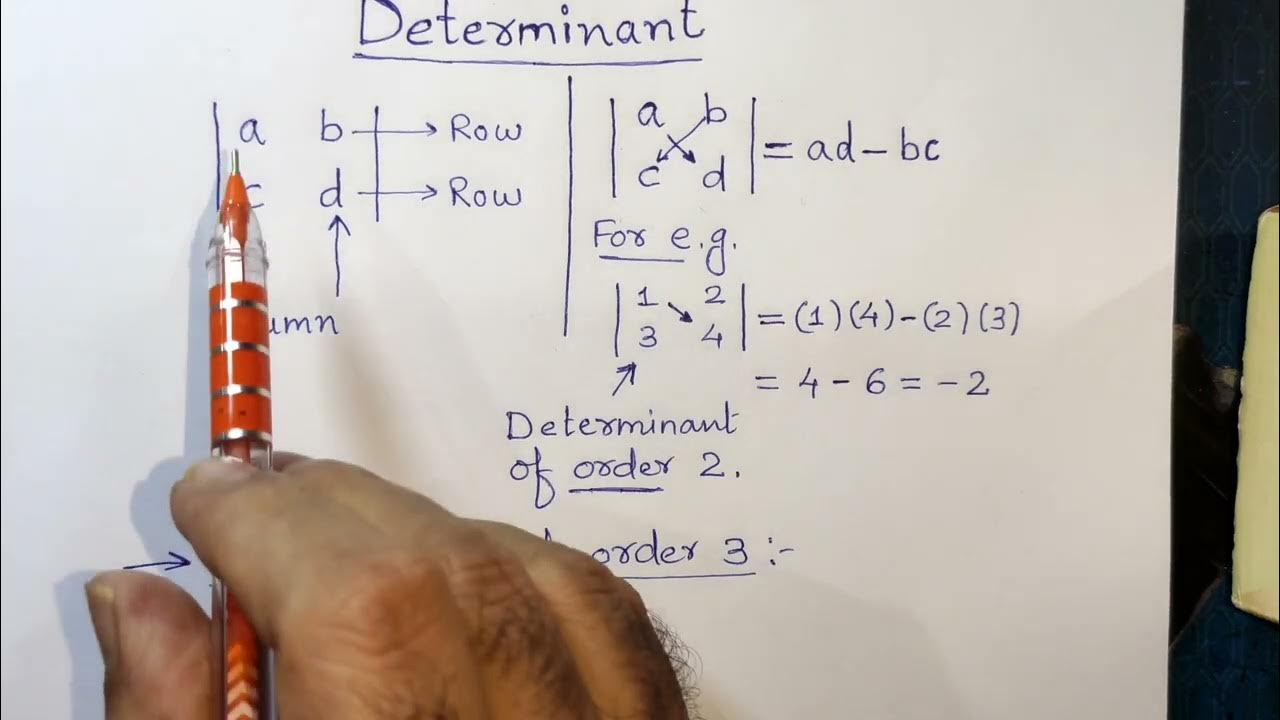 Determinant
a b → Row
c d → Row
| a b |
| c d | = ad - bc
For e.g.
| 1 2 |
| 3 4 | = (1)(4) - (2)(3)
= 4 - 6 = -2
Determinant
of order 2.
order 3 :-